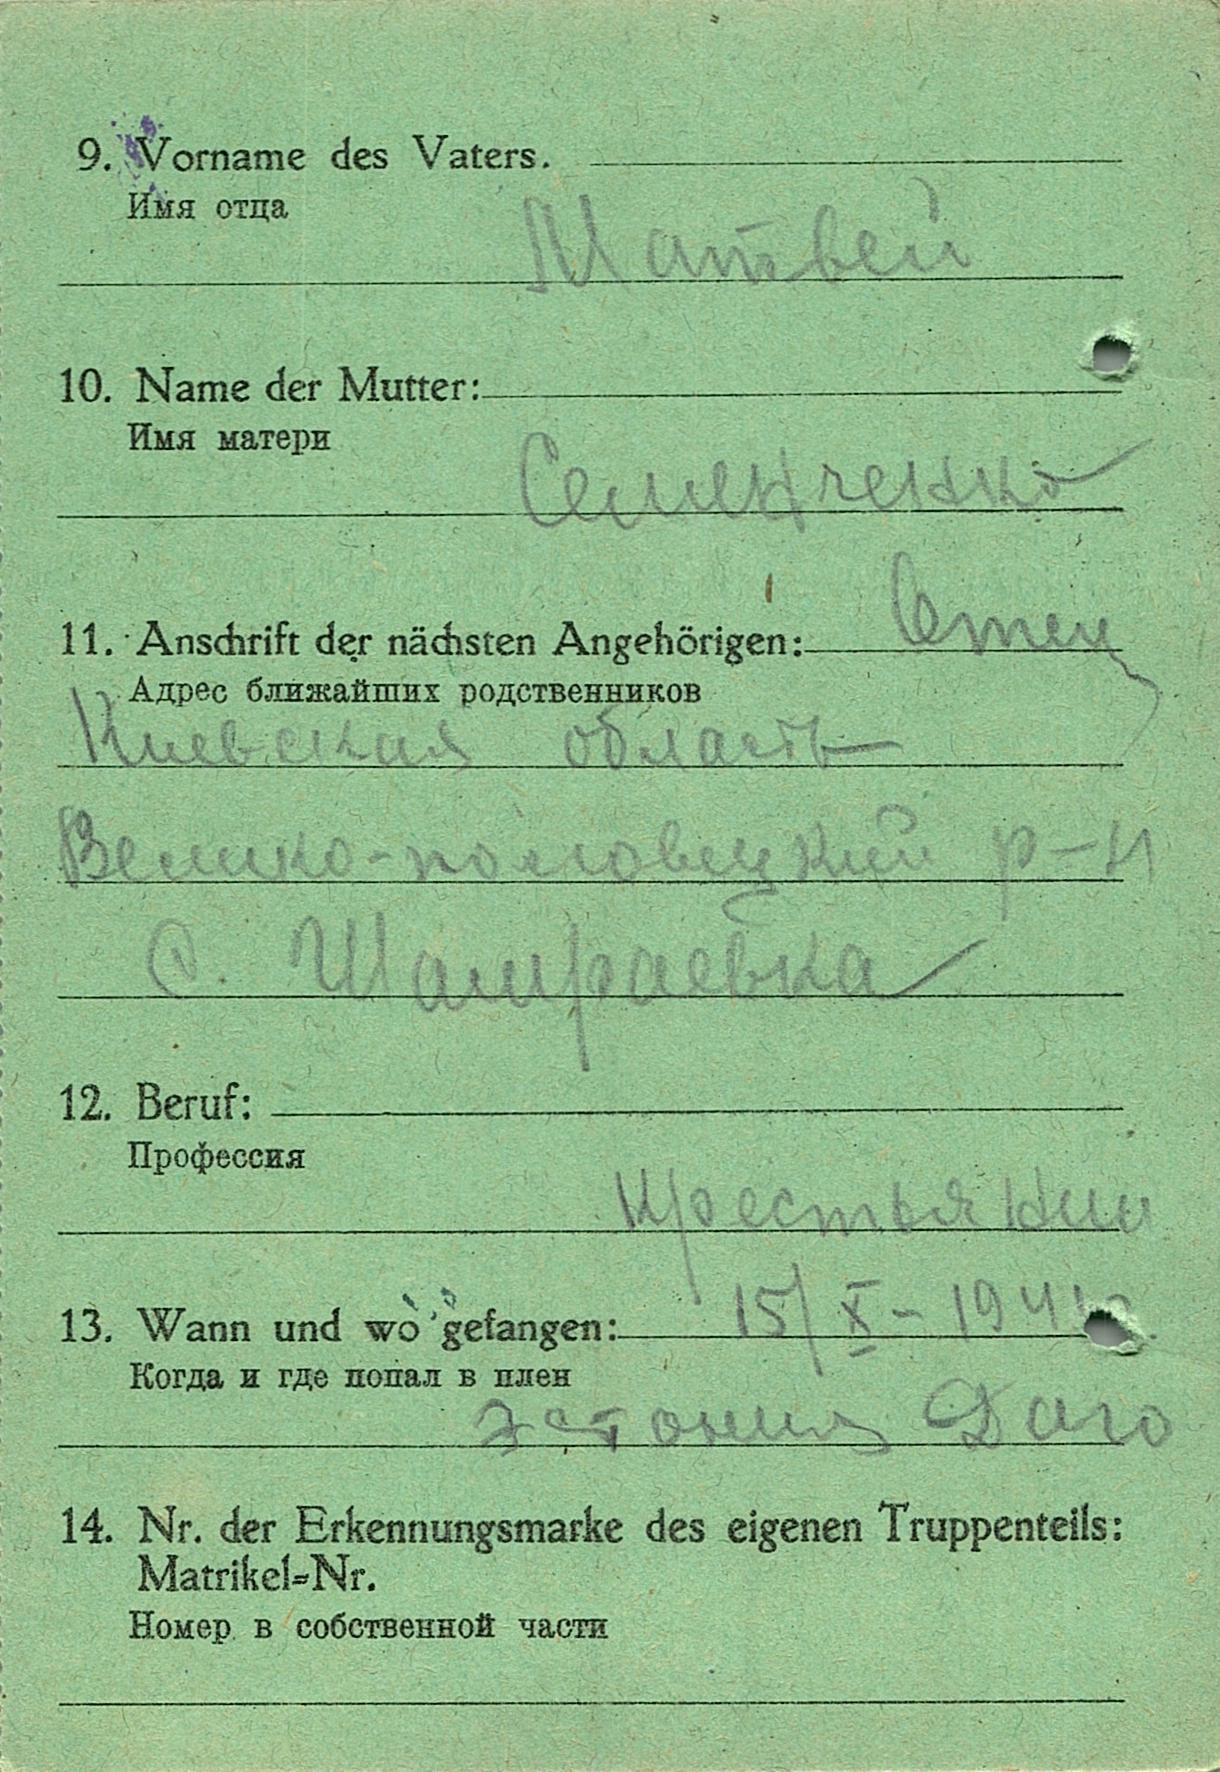 9. Vorname des Vaters.
Имя отца
Матвей
10. Name der Mutter:
Имя матери
Семенченко
11. Anschrift der nächsten Angehörigen: Отец
Адрес ближайших родственников
Киевская область
Велико-половецкий р-н
с. Шамраевка
12. Beruf:
Профессия
Крестьянин
13. Wann und wo gefangen: 15/X-1941
Когда и где попал в плен
Эстония Даго
14. Nr. der Erkennungsmarke des eigenen Truppenteils:
Matrikel-Nr.
Номер в собственной части